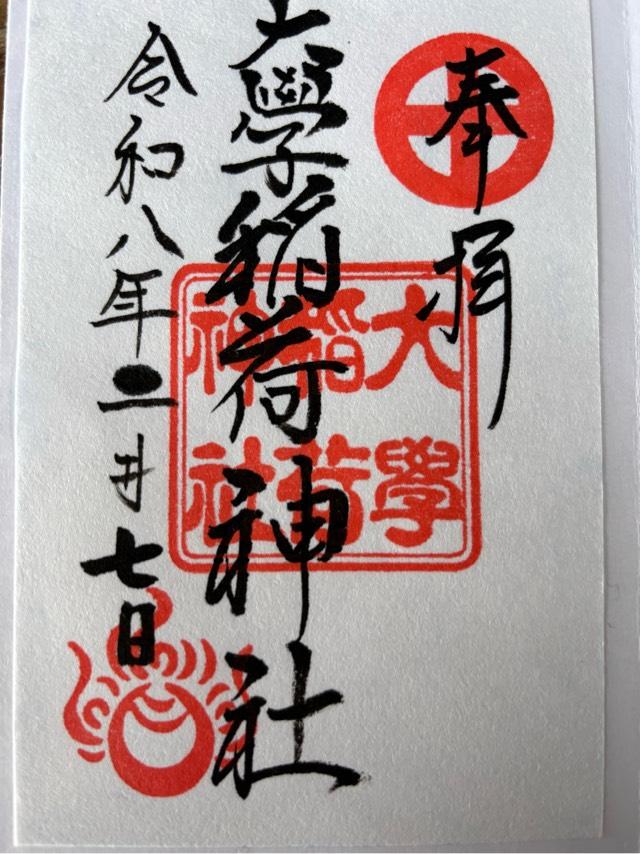 奉拝
大學稲荷神社
大學
稲荷
神社
令和八年二月七日